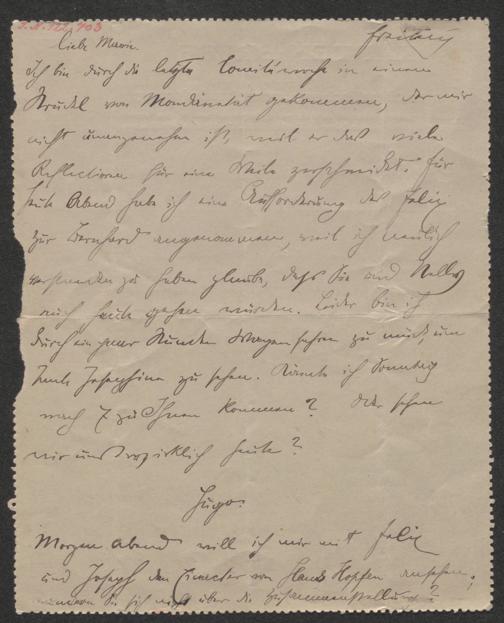 Freitag
liebe Marie.
Ich bin durch die letzte Comitéwoche in einen
Strudel von Mondänität gekommen, der mir
nicht unangenehm ist, weil er das viele
Reflectieren für eine Weile zerschneidet. Für
heute Abend habe ich eine Aufforderung des Felix
zur Bernhard angenommen, weil ich neulich
verstanden zu haben glaube, dass Sie und Nelly
auch heute gehen würden. Leider bin ich
durch ein paar Stunden Wagenfahren zu müd, um
Tante Josephine zu sehen. Könnte ich Sonntag
nach 7 zu Ihnen kommen? Oder sehen
wir uns wirklich heute?
Hugo.
Morgen abend will ich mir mit Felix
und Joseph den von Hans Hopfen ansehen;
wundern Sie sich nicht über die Zusammenstellung?